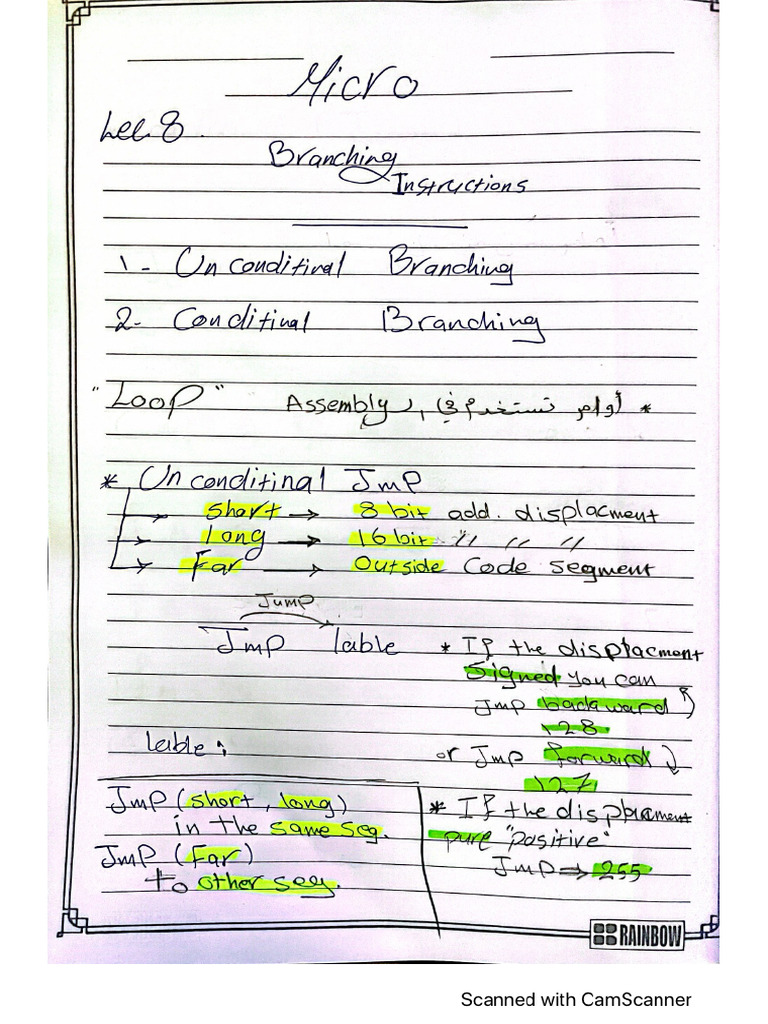 Micro
Lec. 8
Branching
Instructions
1- Unconditinal Branching
2- Conditinal Branching
"Loop" Assembly أوامر تستخدم في ال *
* Unconditinal Jmp
short → 8 bit add. displacment
long → 16 bit " " "
Far → Outside Code segment
Jump
Jmp lable
* If the displacment
signed you can
Jmp backward
128
lable:
or Jmp forward
127
Jmp (short, long)
in the same seg.
Jmp (Far)
to other seg.
* If the displacment
pure "positive"
Jmp ⇒ 255
RAINBOW
Scanned with CamScanner